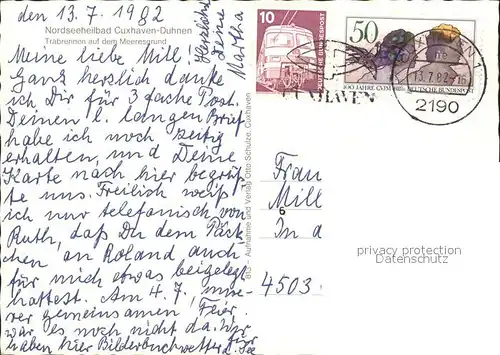 den 13.7.1982
Nordseeheilbad Cuxhaven-Duhnen
Trabrennen auf dem Meeresgrund
Meine liebe Mill!
Ganz herzlich danke
ich Dir für 3 fache Post.
Deinen l. langen Brief
habe ich noch zeitig
erhalten, und Deine
Karte nach hier begrüß-
te uns. Freilich weiß
ich nur telefonisch von
Ruth, daß Du dem Päck-
chen an Roland auch
für mich etwas beigelegt
hattest. Am 4.7., unse-
rer gemeinsamen Feier,
war es noch nicht da. Wir
haben hier Bilderbuchwetter a. d. See
Herzlichst
Deine
Martha
Aufnahme und Verlag Otto Schulze, Cuxhaven
10
DEUTSCHE BUNDESPOST
50
100 JAHRE CVJM
DEUTSCHE BUNDESPOST
CUXHAVEN
13.7.82-16
2190
Frau
Mill
In d
4503
privacy protection
Datenschutz